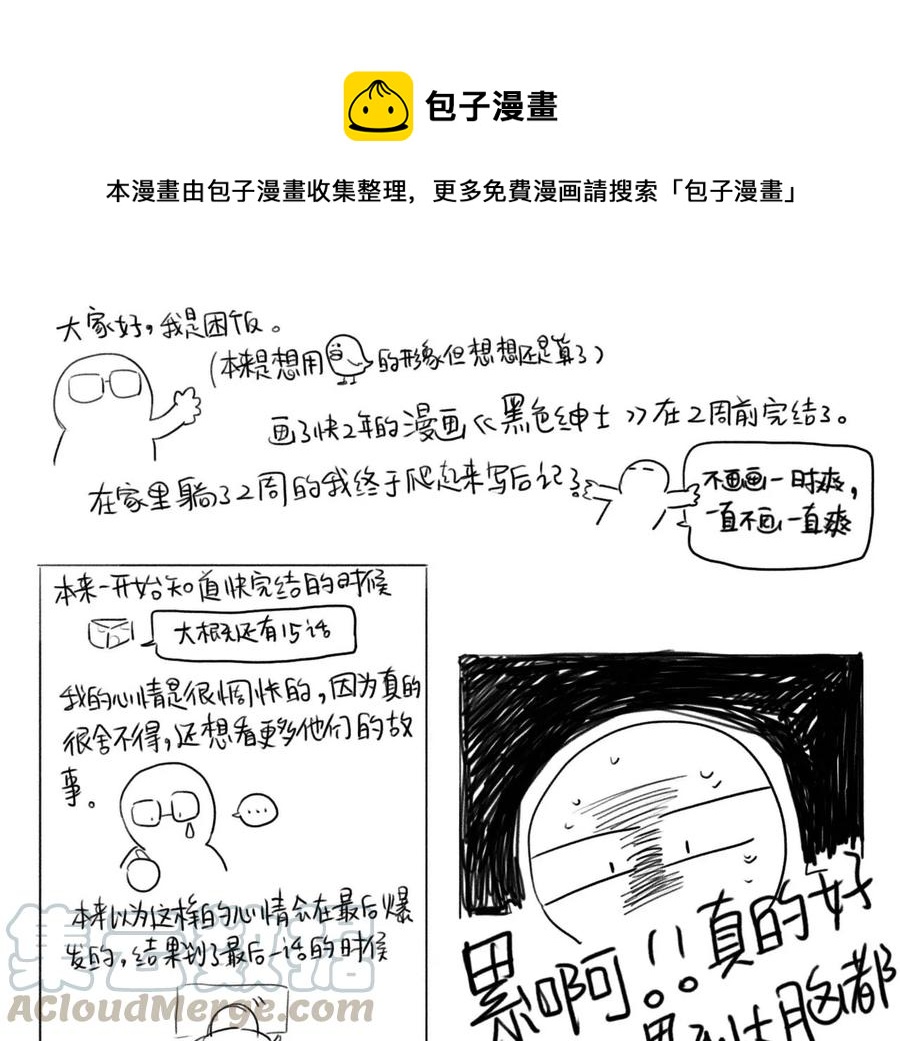 包子漫畫
本漫畫由包子漫畫收集整理，更多免費漫画請搜索「包子漫畫」
大家好，我是困饭。
（本来是想用 的形象但想想还是算了）
画了快2年的漫画《黑色绅士》在2周前完结了。
在家里躺了2周的我终于爬起来写后记了
不画画一时爽，
一直不画一直爽
本来一开始知道快完结的时候
大概还有15话
我的心情是很惆怅的，因为真的
很舍不得，还想看更多他们的故
事。
...
本来以为这样的心情会在最后爆
发的，结果到了最后一话的时候
真的好
累啊！！
大脑都
集云数据
ACloudMerge.com